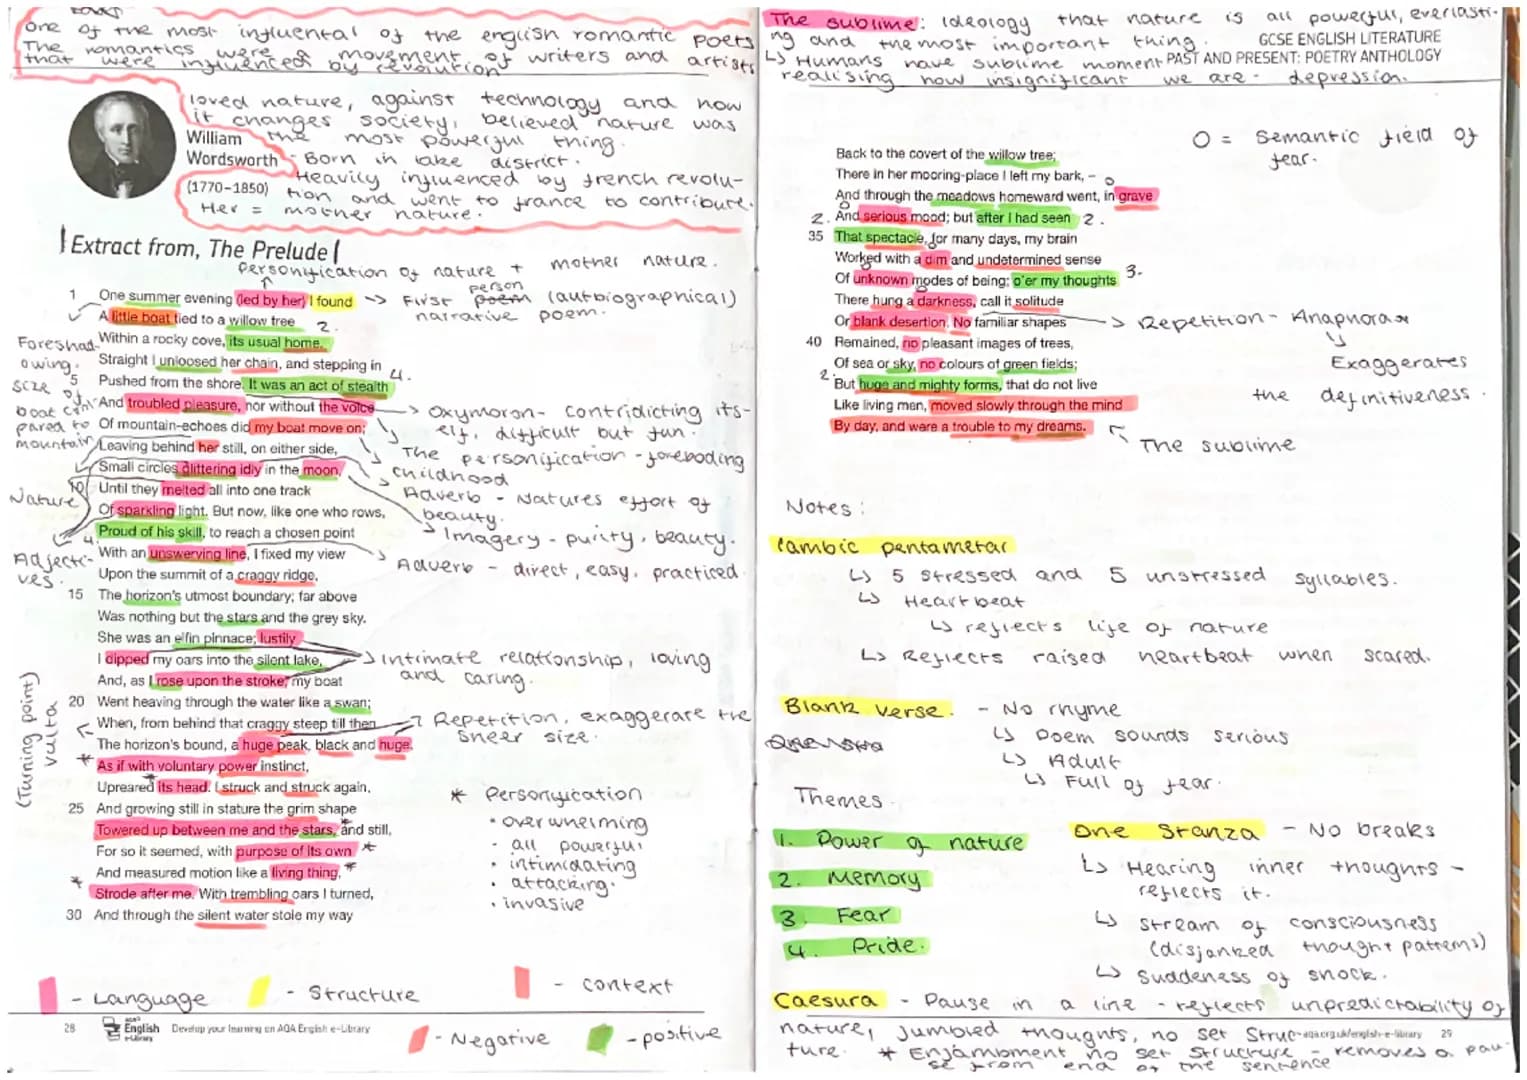 One of the most influental of the english romantic poets
The romantics were a movement of writers and artists
that were influenced by revolution
loved nature, against technology and how
it changes society, believed nature was
the most powerful thing.
William
Wordsworth - Born in lake district.
(1770–1850)
Heavily influenced by french revolu-
tion and went to france to contribute.
Her = mother nature.
Extract from, The Prelude
Personification of nature + mother nature.
1 One summer evening (led by her) I found
→ First person poem (autbiographical)
narrative poem.
A little boat tied to a willow tree
2.
Within a rocky cove, its usual home.
Straight I unloosed her chain, and stepping in
4.
5 Pushed from the shore. It was an act of stealth
And troubled pleasure, nor without the voice
Of mountain-echoes did my boat move on;
Leaving behind her still, on either side,
Small circles glittering idly in the moon,
10 Until they melted all into one track
Of sparkling light. But now, like one who rows,
Proud of his skill, to reach a chosen point
4.
With an unswerving line, I fixed my view
Upon the summit of a craggy ridge,
15 The horizon's utmost boundary; far above
Was nothing but the stars and the grey sky.
She was an elfin pinnace; lustily
I dipped my oars into the silent lake,
And, as I rose upon the stroke, my boat
20 Went heaving through the water like a swan;
When, from behind that craggy steep till then
The horizon's bound, a huge peak, black and huge,
* As if with voluntary power instinct,
Upreared its head. I struck and struck again,
25 And growing still in stature the grim shape
Towered up between me and the stars, and still,
For so it seemed, with purpose of its own *
And measured motion like a living thing, *
* Strode after me. With trembling oars I turned,
30 And through the silent water stole my way
Foreshad-
owing.
Size of
boat com-
pared to
mountain
Nature
Adjecti-
ves.
(Turning point)
vulta
→ Oxymoron - contridicting its-
elf, difficult but fun.
The personification - foreboding
childhood
Adverb - Natures effort of
beauty.
Imagery - purity, beauty.
Adverb - direct, easy, practiced.
→ Intimate relationship, loving
and caring.
→ Repetition, exaggerate the
sheer size.
* Personification
• overwhelming
- all powerful
• intimidating
• attacking.
• invasive
- Language
- Structure
- context
- Negative
- positive
28
AQA
English
e-Library
Develop your learning on AQA English e-Library
The sublime: Ideology that nature is all powerful, everlasti-
ng and the most important thing.
GCSE ENGLISH LITERATURE
↳ Humans have sublime moment
PAST AND PRESENT: POETRY ANTHOLOGY
realising how insignificant we are - depression.
O = Semantic field of
fear.
Back to the covert of the willow tree;
There in her mooring-place I left my bark, –
And through the meadows homeward went, in grave
2. And serious mood; but after I had seen 2.
35 That spectacle, for many days, my brain
Worked with a dim and undetermined sense
Of unknown modes of being; o'er my thoughts 3.
There hung a darkness, call it solitude
Or blank desertion. No familiar shapes
40 Remained, no pleasant images of trees,
Of sea or sky, no colours of green fields;
2. But huge and mighty forms, that do not live
Like living men, moved slowly through the mind
By day, and were a trouble to my dreams.
→ Repetition - Anaphora
Exaggerates
the definitiveness.
The sublime
Notes:
Iambic pentametar
↳ 5 stressed and 5 unstressed syllables.
↳ Heartbeat
↳ reflects life of nature
↳ Reflects raised heartbeat when scared.
Blank verse. - No rhyme
↳ Poem sounds serious
↳ Adult
↳ Full of fear.
Themes.
1. Power of nature
2. Memory
3. Fear
4. Pride.
One Stanza - No breaks
↳ Hearing inner thoughts -
reflects it.
↳ Stream of consciousness
(disjanked thought patterns)
↳ Suddeness of shock.
Caesura - Pause in a line - reflects unpredictability of
nature, jumbled thoughts, no set struc-
ture. * Enjambment no set structure - removes a pau-
se from end of the sentence
aqa.org.uk/english-e-library 29